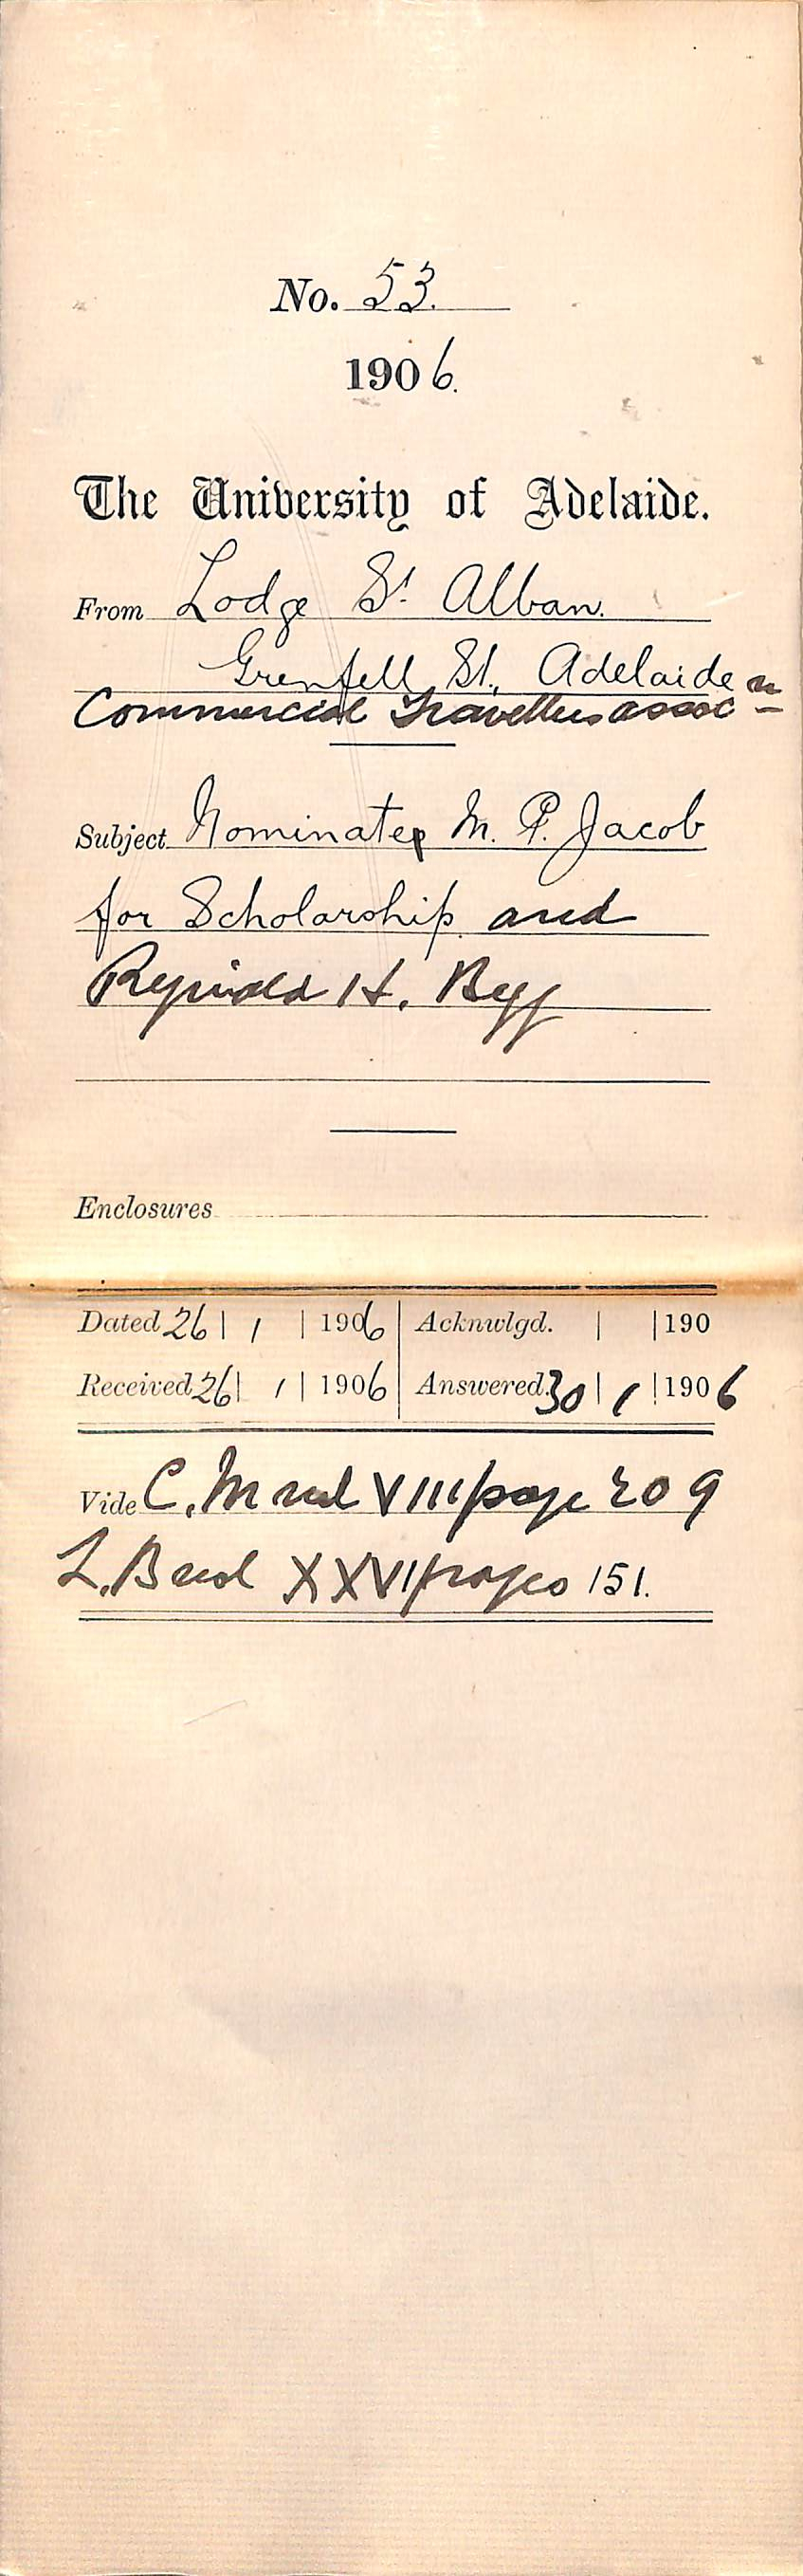 No. 53.
1906.
The University of Adelaide.
From Lodge St. Alban.
Grenfell St. Adelaide
Commercial Travellers assocn
Subject Nominates M. P. Jacob
for Scholarship and
Reginald H. Begg
Enclosures
Dated 26 | 1 | 1906 | Acknwlgd. | | 190
Received 26 | 1 | 1906 | Answered. 30 | 1 | 1906
Vide C.M vol VIII page 209
L.B vol XXVI pages 151.